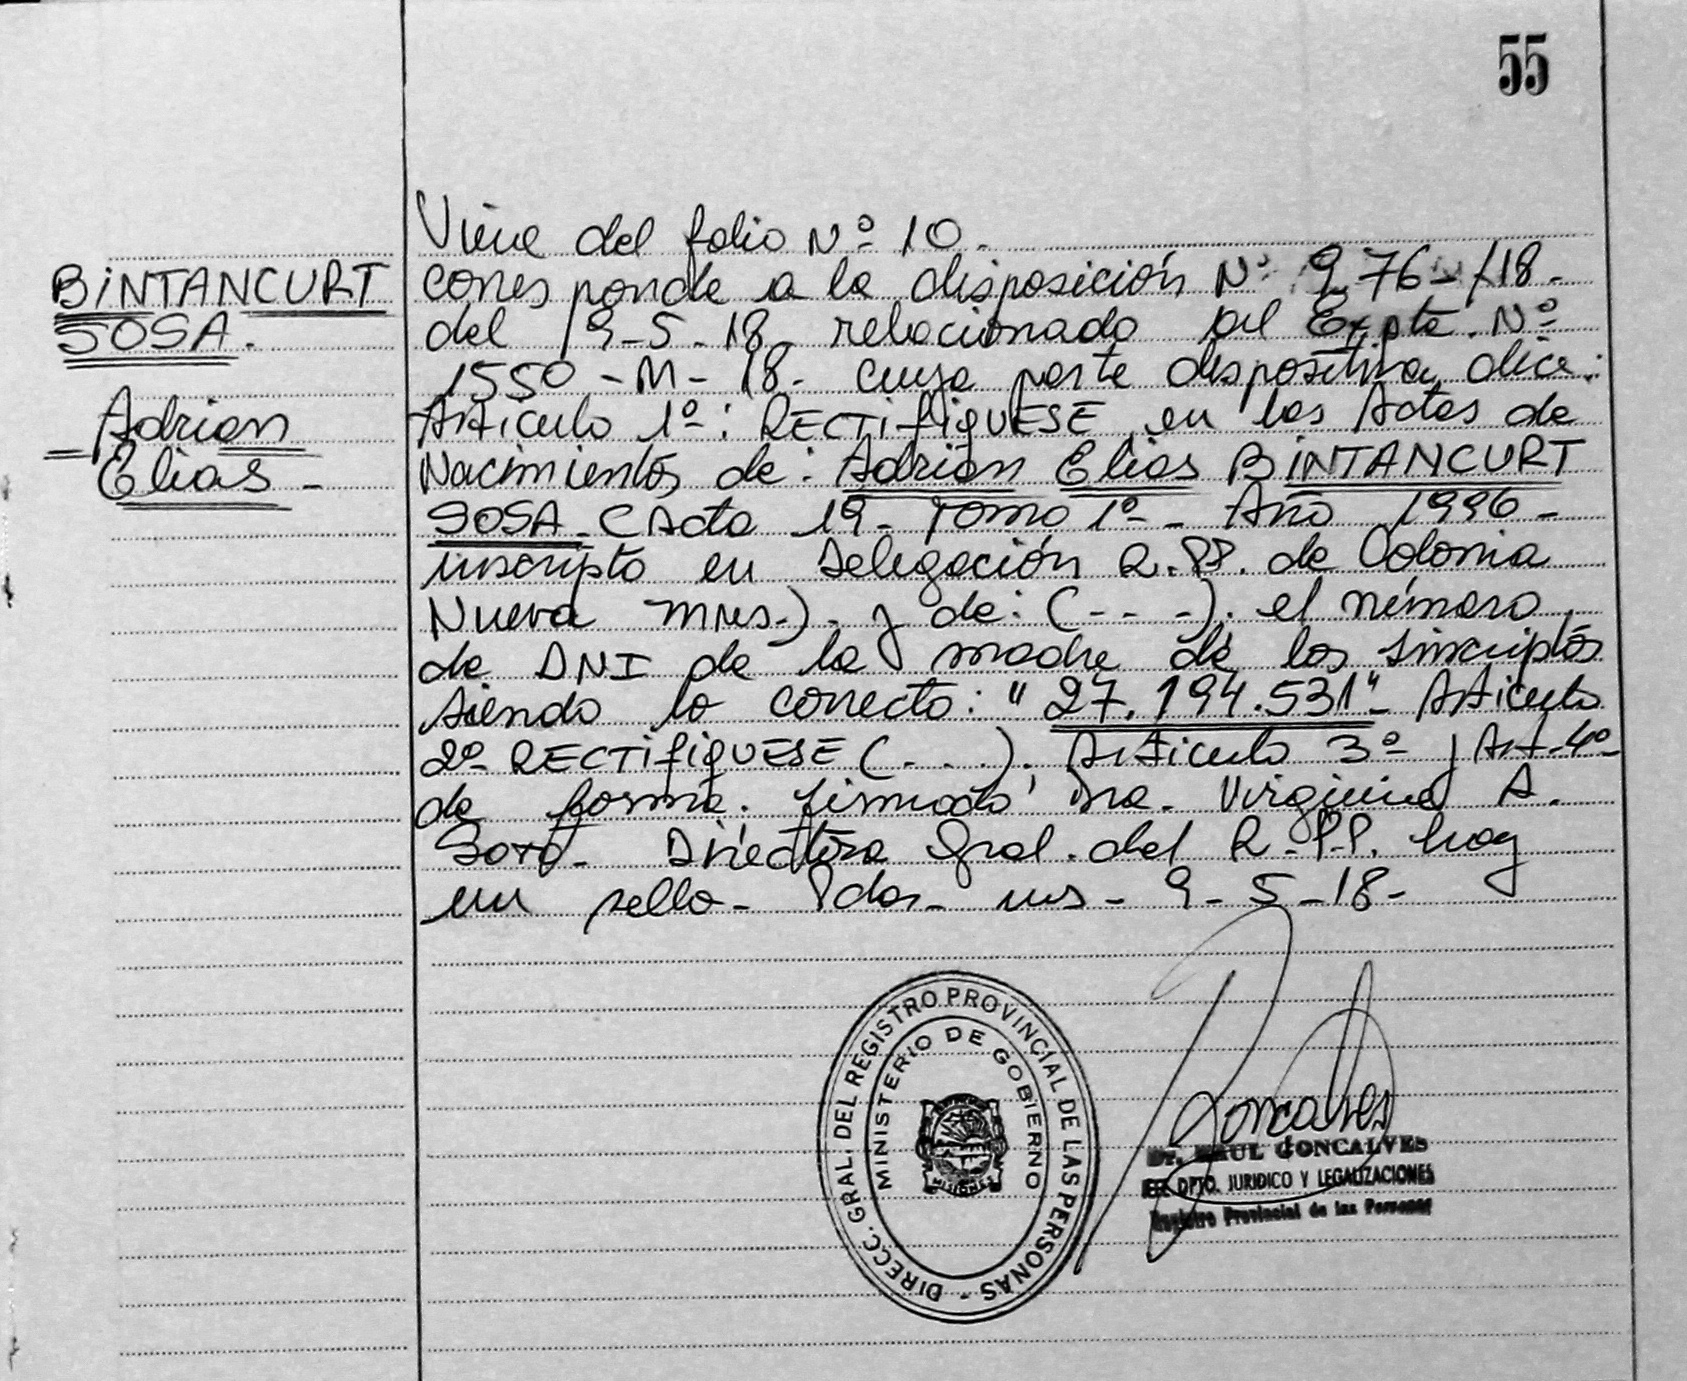 55
BiNTANCURT
SOSA.
Adrian
Elias -
Viene del folio Nº 10.
corresponde a la disposición Nº 976 /18.
del 9-5-18. relacionado al Expte. Nº
1550-M-18. cuya parte dispositiva, dice:
Articulo 1º: RECTIFIQUESE en las Actas de
Nacimientos de: Adrian Elias BINTANCURT
SOSA. (Acta 19. Tomo 1º - Año 1996 -
inscripto en Delegación R.PP. de Colonia
Nueva Mnes.). y de: (- - -). el número
de DNI de la madre de los inscriptos
siendo lo correcto: "27.194.531" Articulo
2º RECTIFIQUESE (. . .). Articulo 3º y Art-4º
de forma. firmado Dra. Virginia A.
Soto. Directora Gral. del R.P.P. hay
un sello - Pdas - Ms - 9-5-18-
DIRECC. GRAL. DEL REGISTRO PROVINCIAL DE LAS PERSONAS -
MINISTERIO DE GOBIERNO
MISIONES
Goncalves
Dr. RAUL GONCALVES
DPTO. JURIDICO Y LEGALIZACIONES
Registro Provincial de las Personas